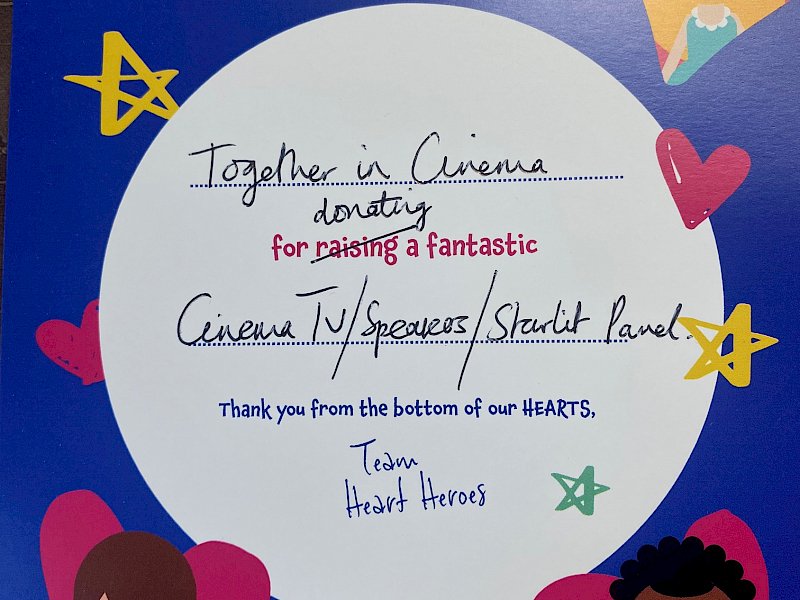 Together in Cinema
donating
for raising a fantastic
Cinema TV/Speakers/Starlit Panel.
Thank you from the bottom of our HEARTS,
Team
Heart Heroes